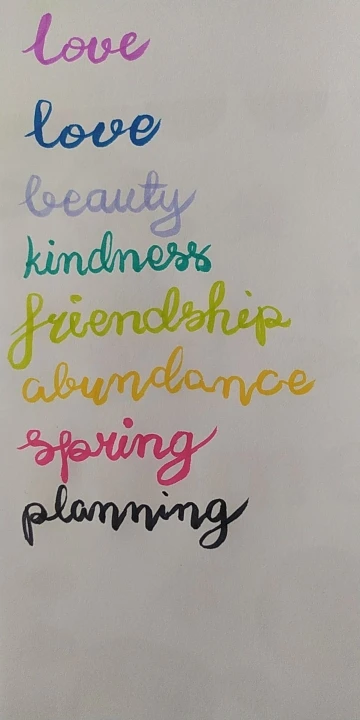 love
love
beauty
kindness
friendship
abundance
spring
planning